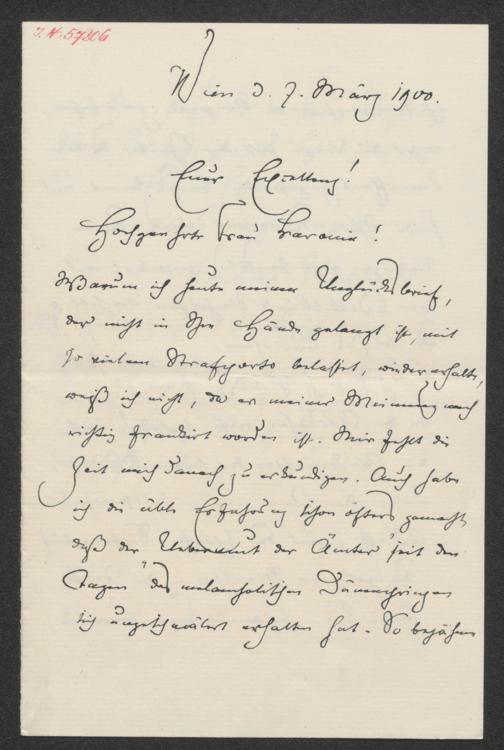 J.N. 57806
Wien d. 7. März 1900.
Euer Exzellenz!
Hochgeehrte Frau Baronin!
Warum ich heute meinen Unglücksbrief,
der nicht in Ihre Hände gelangt ist, mit
so vielem Strafporto belastet, wieder erhalte,
weiß ich nicht, da er meiner Meinung nach
richtig frankirt worden ist. Mir fehlt die
Zeit mich danach zu erkundigen. Auch habe
ich die üble Erfahrung schon öfters gemacht
daß der Uebermut der Ämter seit den
Tagen des melancholischen Dänenprinzen
sich ungeschmälert erhalten hat. So